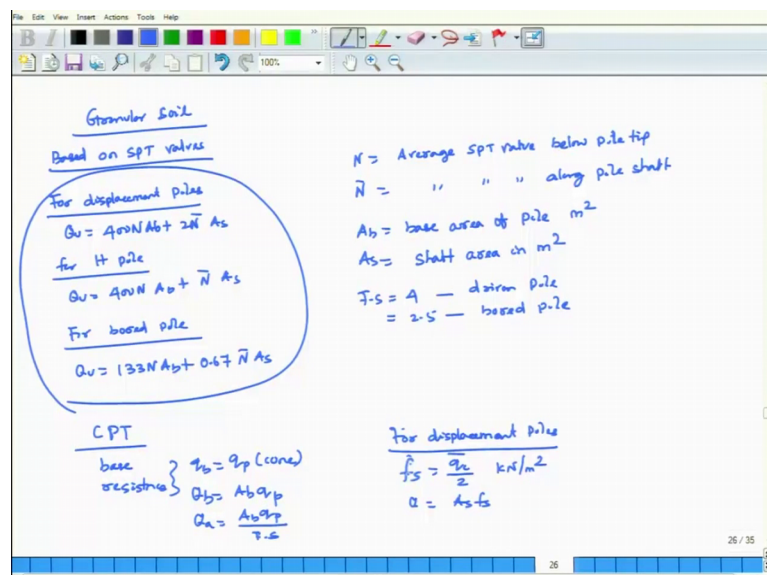 File Edit View Insert Actions Tools Help
B I
100%
Granular Soil
Based on SPT values
For displacement piles
Qu = 400NAb + 2N̄ As
for H pile
Qu = 400N Ab + N̄ As
For bored pile
Qu = 133N Ab + 0.67 N̄ As
N = Average SPT value below pile tip
N̄ = " " " along pile shaft
Ab = base area of pile m²
As = shaft area in m²
F.S = 4 — driven pile
= 2.5 — bored pile
CPT
base resistnce } qb = qp (cone)
Qb = Ab qp
Qa = Ab qp / F.S
For displacement piles
f̄s = q̄c / 2 kN/m²
Q = As fs
26 / 35
26